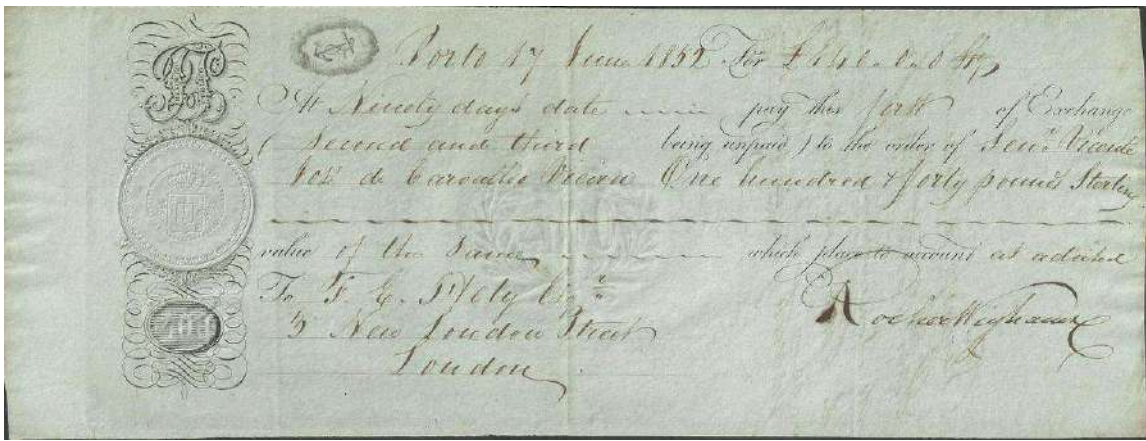 Porto 17 June 1852 For £140.0.0 Stg
At Ninety days date pay this first of Exchange
(second and third being unpaid) to the order of Senr. Vicente
José de Carvalho Vieira One hundred & forty pounds Sterling
value of the same which place to account as advised
To F. C. Esqre.
5 New London Street
London